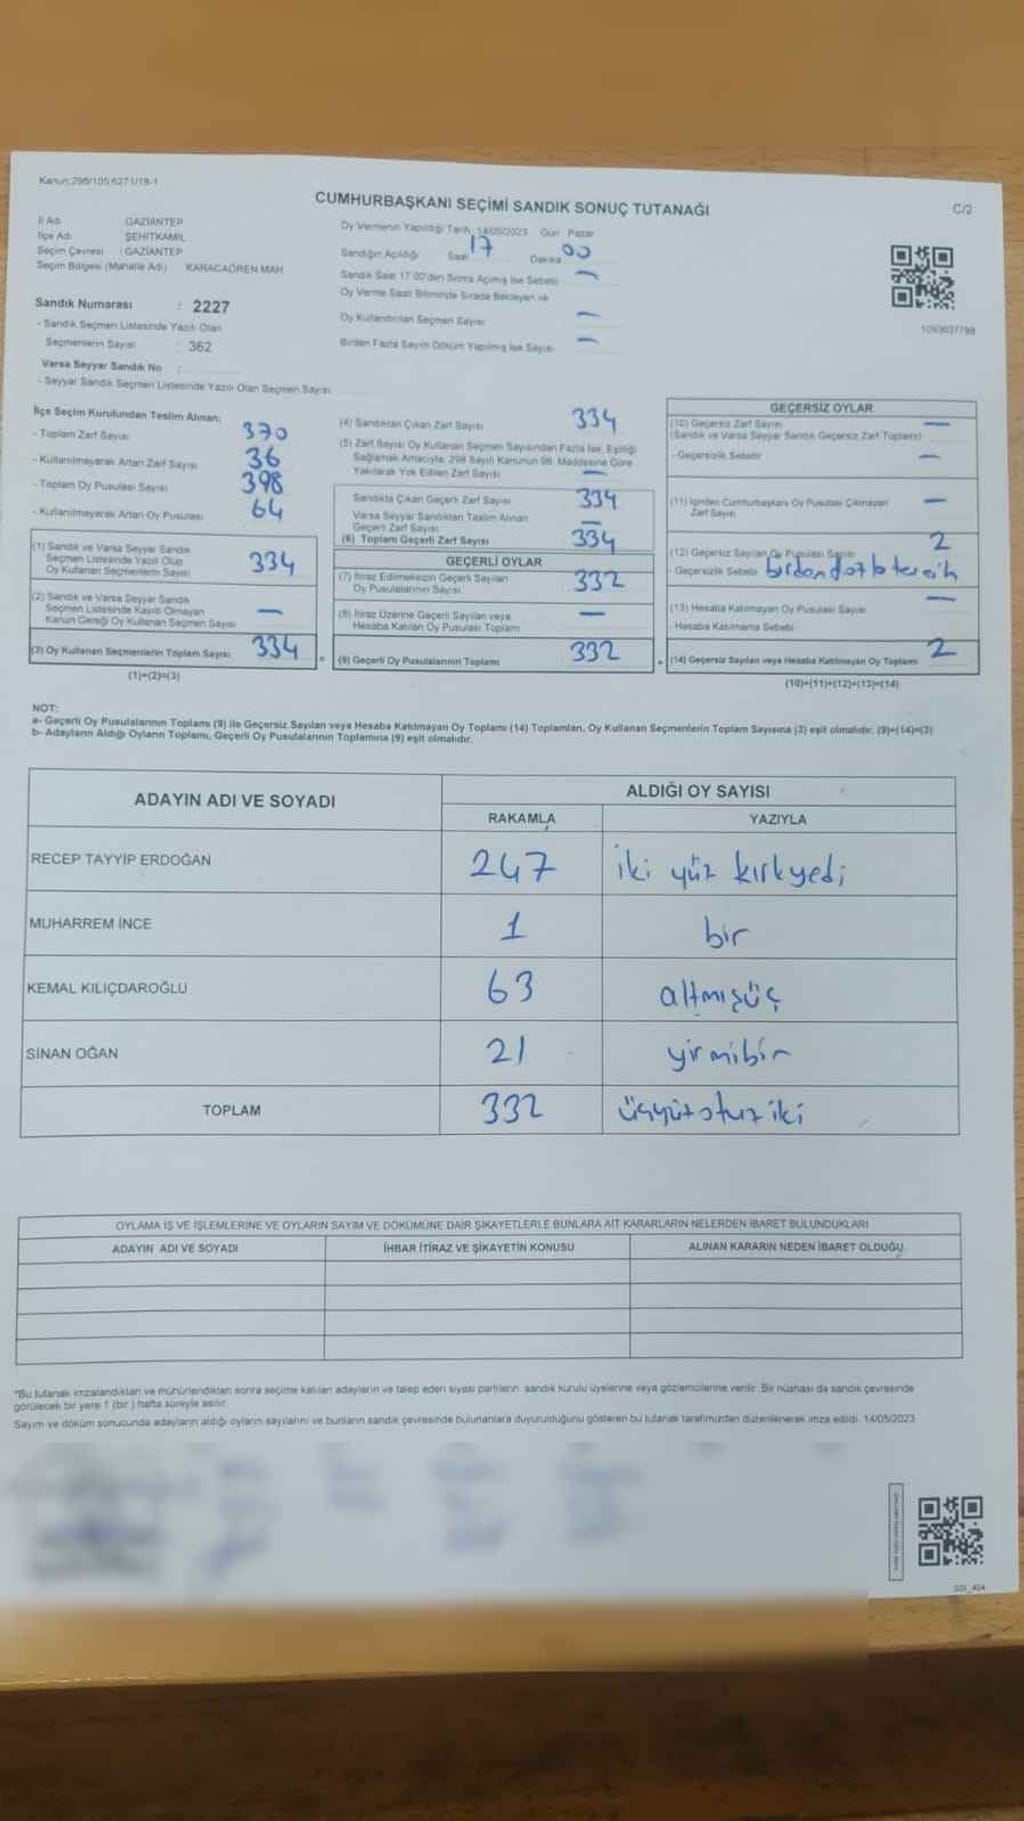 Kanun:298/105,6271/18-1
CUMHURBAŞKANI SEÇİMİ SANDIK SONUÇ TUTANAĞI
C/2
İl Adı GAZİANTEP
İlçe Adı ŞEHİTKAMİL
Seçim Çevresi : GAZİANTEP
Seçim Bölgesi (Mahalle Adı) KARACAÖREN MAH
Sandık Numarası : 2227
- Sandık Seçmen Listesinde Yazılı Olan
Seçmenlerin Sayısı : 362
Varsa Seyyar Sandık No :
- Seyyar Sandık Seçmen Listesinde Yazılı Olan Seçmen Sayısı
Oy Vermenin Yapıldığı Tarih :14/05/2023 Gün : Pazar
Sandığın Açıldığı Saat 17 Dakika 00
Sandık Saat 17:00'den Sonra Açılmış İse Sebebi —
Oy Verme Saati Bitiminde Sırada Bekleyen ve
Oy Kullandırılan Seçmen Sayısı —
Birden Fazla Sayım Döküm Yapılmış İse Sayısı —
1093637799
İlçe Seçim Kurulundan Teslim Alınan;
- Toplam Zarf Sayısı 370
- Kullanılmayarak Artan Zarf Sayısı 36
- Toplam Oy Pusulası Sayısı 398
- Kullanılmayarak Artan Oy Pusulası 64
(1) Sandık ve Varsa Seyyar Sandık
Seçmen Listesinde Yazılı Olup
Oy Kullanan Seçmenlerin Sayısı 334
(2) Sandık ve Varsa Seyyar Sandık
Seçmen Listesinde Kayıtlı Olmayan
Kanun Gereği Oy Kullanan Seçmen Sayısı —
(3) Oy Kullanan Seçmenlerin Toplam Sayısı 334
(1)+(2)=(3)
(4) Sandıktan Çıkan Zarf Sayısı 334
(5) Zarf Sayısı Oy Kullanan Seçmen Sayısından Fazla İse, Eşitliği
Sağlamak Amacıyla, 298 Sayılı Kanunun 98. Maddesine Göre
Yakılarak Yok Edilen Zarf Sayısı —
Sandıkta Çıkan Geçerli Zarf Sayısı 334
Varsa Seyyar Sandıktan Teslim Alınan
Geçerli Zarf Sayısı —
(6) Toplam Geçerli Zarf Sayısı 334
GEÇERLİ OYLAR
(7) İtiraz Edilmeksizin Geçerli Sayılan
Oy Pusulalarının Sayısı 332
(8) İtiraz Üzerine Geçerli Sayılan veya
Hesaba Katılan Oy Pusulası Toplamı —
(9) Geçerli Oy Pusulalarının Toplamı 332
GEÇERSİZ OYLAR
(10) Geçersiz Zarf Sayısı —
(Sandık ve Varsa Seyyar Sandık Geçersiz Zarf Toplamı)
- Geçersizlik Sebebi —
(11) İçinden Cumhurbaşkanı Oy Pusulası Çıkmayan
Zarf Sayısı —
(12) Geçersiz Sayılan Oy Pusulası Sayısı 2
- Geçersizlik Sebebi birden fazla tercih
(13) Hesaba Katılmayan Oy Pusulası Sayısı —
- Hesaba Katılmama Sebebi
(14) Geçersiz Sayılan veya Hesaba Katılmayan Oy Toplamı 2
(10)+(11)+(12)+(13)=(14)
NOT:
a- Geçerli Oy Pusulalarının Toplamı (9) ile Geçersiz Sayılan veya Hesaba Katılmayan Oy Toplamı (14) Toplamları, Oy Kullanan Seçmenlerin Toplam Sayısına (3) eşit olmalıdır. (9)+(14)=(3)
b- Adayların Aldığı Oyların Toplamı, Geçerli Oy Pusulalarının Toplamına (9) eşit olmalıdır.
ADAYIN ADI VE SOYADI ALDIĞI OY SAYISI
RAKAMLA YAZIYLA
RECEP TAYYİP ERDOĞAN 247 iki yüz kırkyedi
MUHARREM İNCE 1 bir
KEMAL KILIÇDAROĞLU 63 altmışüç
SİNAN OĞAN 21 yirmibir
TOPLAM 332 üçyüzotuz iki
OYLAMA İŞ VE İŞLEMLERİNE VE OYLARIN SAYIM VE DÖKÜMÜNE DAİR ŞİKAYETLERLE BUNLARA AİT KARARLARIN NELERDEN İBARET BULUNDUKLARI
ADAYIN ADI VE SOYADI İHBAR İTİRAZ VE ŞİKAYETİN KONUSU ALINAN KARARIN NEDEN İBARET OLDUĞU
*Bu tutanak imzalandıktan ve mühürlendikten sonra seçime katılan adayların ve talep eden siyasi partilerin sandık kurulu üyelerine veya gözlemcilerine verilir. Bir nüshası da sandık çevresinde
görülecek bir yere 1 (bir) hafta süreyle asılır.
Sayım ve döküm sonucunda adayların aldığı oyların sayılarını ve bunların sandık çevresinde bulunanlara duyurulduğunu gösteren bu tutanak tarafımızdan düzenlenerek imza edildi. 14/05/2023